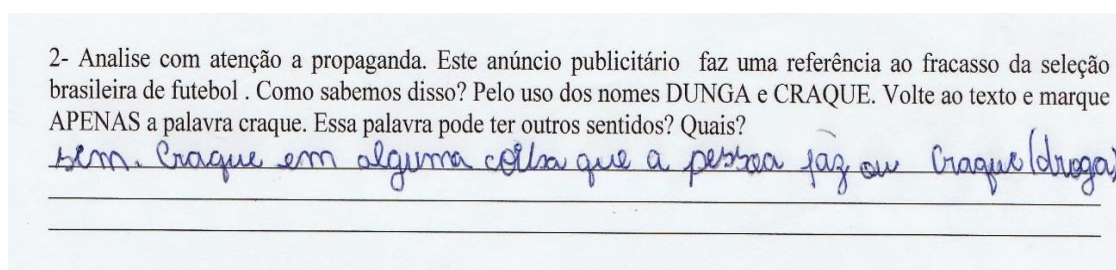 2- Analise com atenção a propaganda. Este anúncio publicitário faz uma referência ao fracasso da seleção
brasileira de futebol . Como sabemos disso? Pelo uso dos nomes DUNGA e CRAQUE. Volte ao texto e marque
APENAS a palavra craque. Essa palavra pode ter outros sentidos? Quais?
sim. Craque em alguma coisa que a pessoa faz ou Craque (droga)